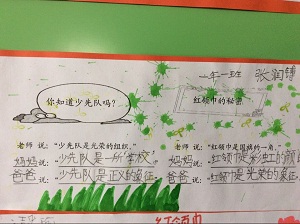 一年一班 张润锋
你知道少先队吗？
红领巾的秘密
老师 说：“少先队是光荣的组织。”
老师 说：“红领巾是国旗的一角。”
妈妈说：“少先队是一所学校”
妈妈说：“红领巾是彩虹的颜
爸爸说：“少先队是正义的象征。
爸爸说：“红领巾是光荣的象征。